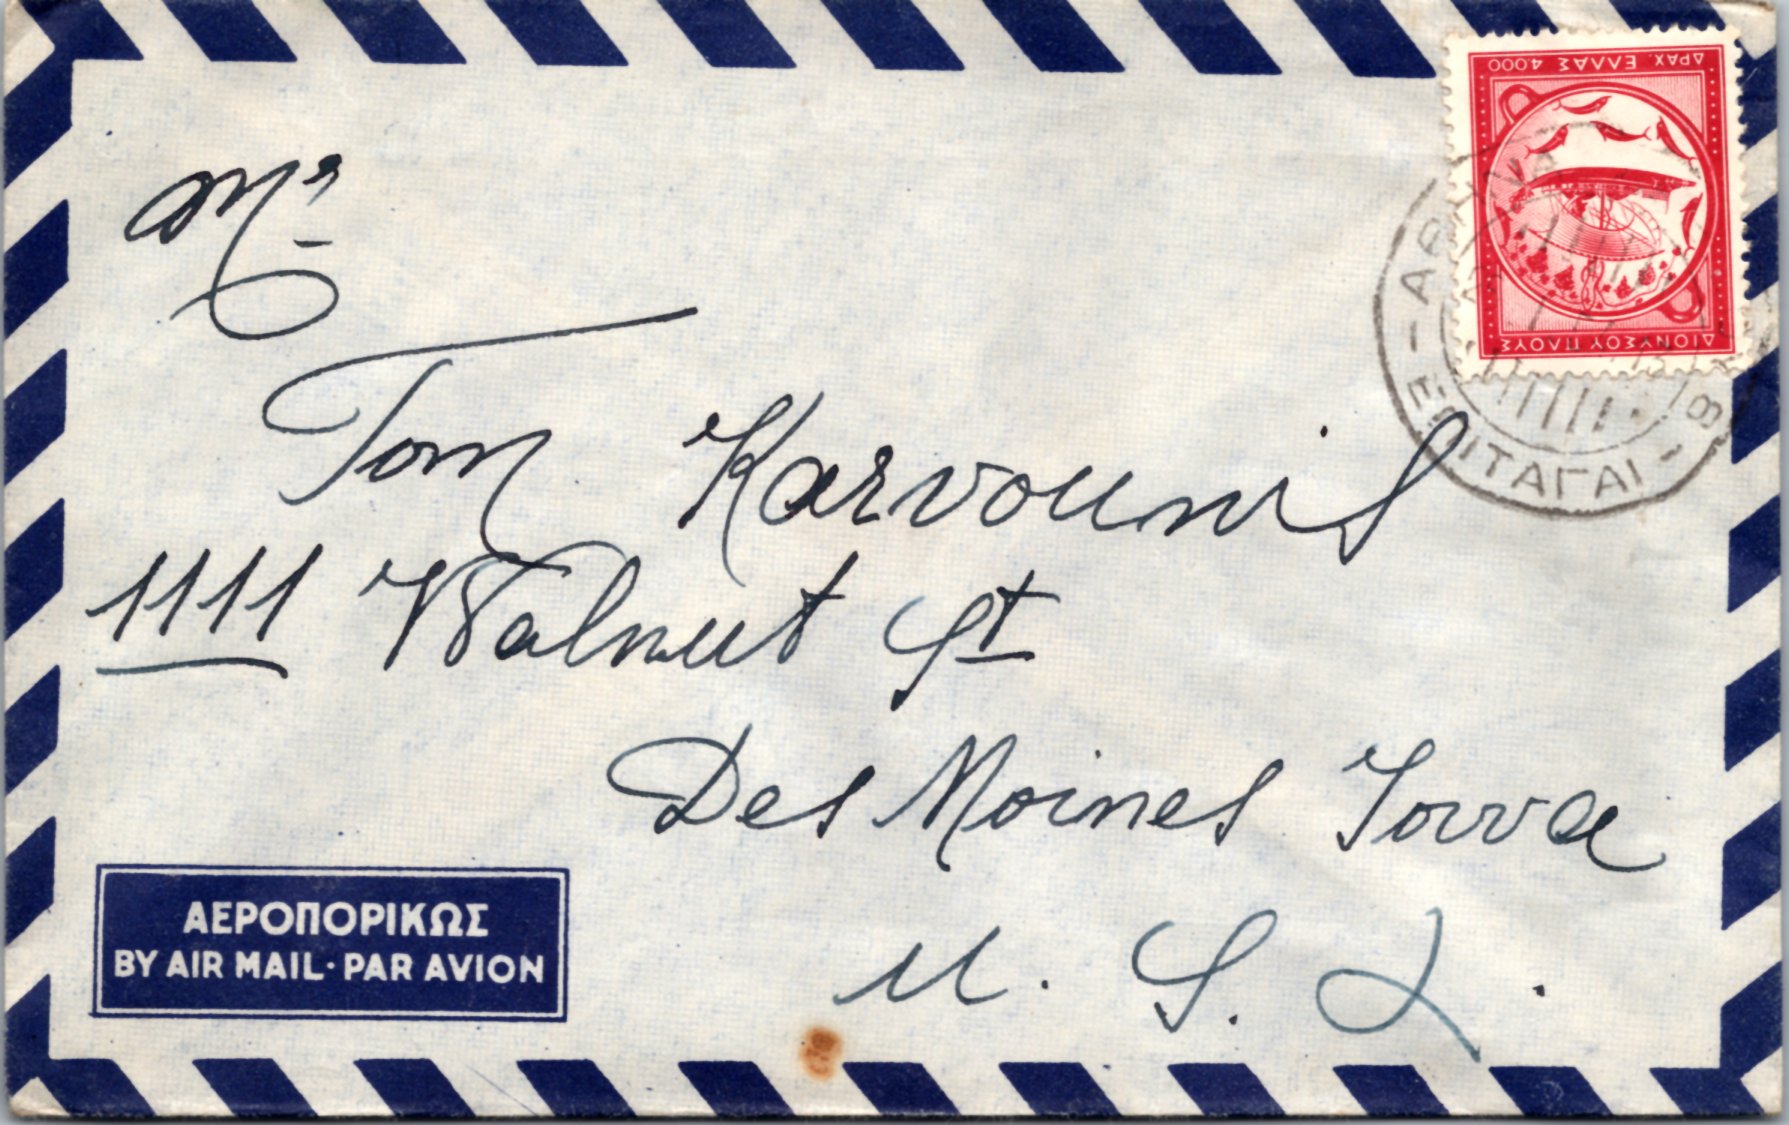 ΔΡΑΧ. ΕΛΛΑΣ 4000
ΔΙΟΝΥΣΟΥ ΠΛΟΥΣ
ΕΠΙΤΑΓΑΙ
Mr
Tom Karvounis
1111 Walnut St
Des Moines Iowa
U. S. A.
ΑΕΡΟΠΟΡΙΚΩΣ
BY AIR MAIL · PAR AVION